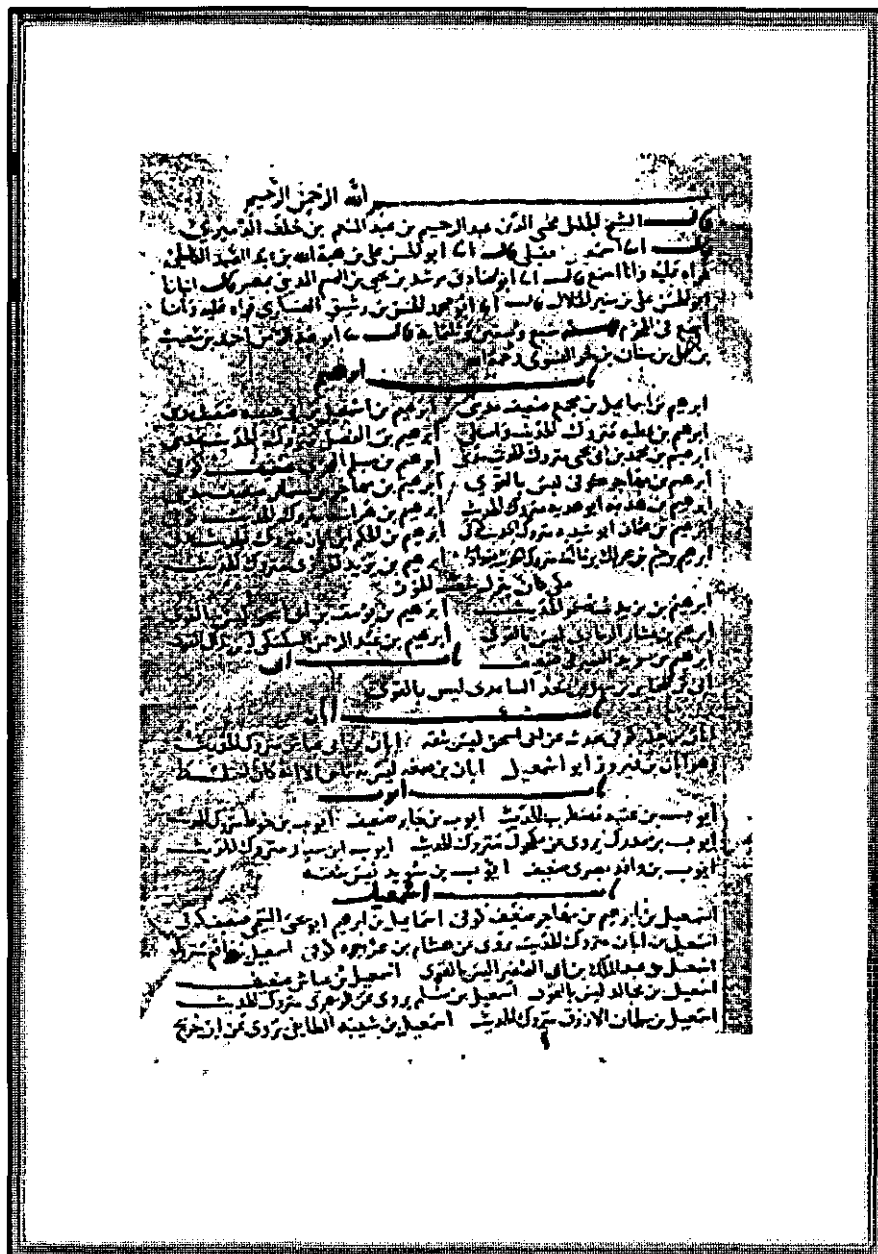 الله الرحمن الرحيم
قال الشيخ الجليل محيى الدين عبد الرحيم بن عبد المنعم بن خلف الدميري
قال انا احمد بن قال انا ابو الحسن على بن هبة الله بن
قراه عليه وانا اسمع قال انا ابو صادق مرشد بن يحيى بن القسم المديني بمصر قال انبانا
ابو الحسن على بن منير الخلال قال انا ابو محمد الحسن بن رشيق العسكرى قراه عليه وانا
اسمع فى المحرم سنه سبع وستين وثلثمايه قال انا ابو عبد الرحمن احمد بن شعيب
بن على بن سنان بن بحر النسوى رحمه الله
باب ابرهيم
ابرهيم بن اسماعيل بن مجمع ضعيف مدنى ابرهيم بن اسمعيل بن ابى حبيبه ضعيف مدنى
ابرهيم بن عطيه متروك الحديث واسطى ابرهيم بن الفضل متروك الحديث مدنى
ابرهيم بن محمد بن ابى يحيى متروك الحديث مدنى ابرهيم بن مسلم الهجرى ضعيف كوفى
ابرهيم بن مهاجر كوفى ليس بالقوى ابرهيم بن مهاجر بن مسمار ضعيف مدنى
ابرهيم بن هدبه ابو هدبه متروك الحديث ابرهيم بن هراسه متروك الحديث كوفى
ابرهيم بن عثمان ابو شيبه متروك الحديث كوفى ابرهيم بن الحكم بن ابان متروك الحديث عدنى
ابرهيم بن خثيم بن عراك بن مالك متروك الحديث ابرهيم بن يزيد الخوزى متروك الحديث
مكى كان ينزل شعب الخوز
ابرهيم بن يزيد الحديث ابرهيم بن يوسف بن ابى اسحق ليس بالقوى
ابرهيم بن بشار الرمادى ليس بالقوى ابرهيم بن عبد الرحمن السكسكى ليس بذاك القوى
ابرهيم بن سويد الصيرفى ضعيف
باب ابى
ابى بن عباس بن سهل بن سعد الساعدى ليس بالقوى
باب ابان
ابان بن تغلب كوفى يحدث عن ابى اسحق ليس بثقه ابان بن ابى عياش متروك الحديث
وهو ابان بن فيروز ابو اسمعيل ابان بن صمعه ليس به باس الا انه كان اختلط
باب ايوب
ايوب بن عتبه مضطرب الحديث ايوب بن جابر ضعيف ايوب بن خوط متروك الحديث
ايوب بن مدرك يروى عن مكحول متروك الحديث ايوب ابن سيار متروك الحديث
ايوب بن واقد بصرى ضعيف ايوب بن سويد ليس بثقه
باب اسمعيل
اسمعيل بن ابرهيم بن مهاجر ضعيف كوفى اسماعيل بن ابرهيم ابو يحيى التيمى ضعيف كوفى
اسمعيل بن ابان متروك الحديث يروى عن هشام بن عروه كوفى اسمعيل بن متروك
اسمعيل بن عبد الملك بن ابى الصفير ليس بالقوى اسمعيل بن عياش ضعيف
اسمعيل بن مجالد ليس بالقوى اسمعيل بن مسلم يروى عن الزهرى متروك الحديث
اسمعيل بن سلمان الازرق متروك الحديث اسمعيل بن شيبه الطايفى يروى عن ابن جريج